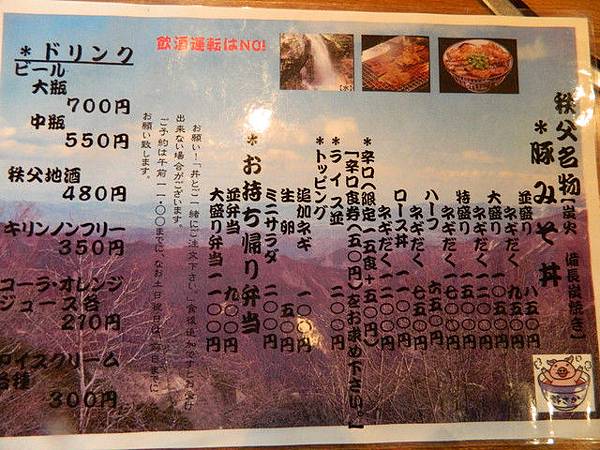 秩父名物 [炭火 備長炭焼き]
*豚みそ丼
並盛り 八五〇円
ネギだく 九五〇円
大盛り 一〇〇〇円
ネギだく 一一〇〇円
特盛り 一五〇〇円
ネギだく 一七〇〇円
ハーフ 六五〇円
ネギだく 七〇〇円
ロース丼 一一〇〇円
ネギだく 一二〇〇円
*辛口(限定一五食+五〇円)
「辛口食券(五〇円)をお求め下さい。」
*ライス並 一五〇円
*トッピング
追加ネギ 一〇〇円
生卵 五〇円
ミニサラダ 二〇〇円
*お持ち帰り弁当
並弁当 九〇〇円
大盛り弁当 一一〇〇円
お願い!「丼とご一緒にご注文下さい。」食後追加ですとお受け
出来ない場合がございます。
ご予約は午前一一:〇〇までに、なお土日祝日は、前日までに
お願い致します。
飲酒運転はNO!
[水]
*ドリンク
ビール
大瓶
700円
中瓶
550円
秩父地酒
480円
キリンノンフリー
350円
コーラ・オレンジ
ジュース各
210円
アイスクリーム
各種
300円